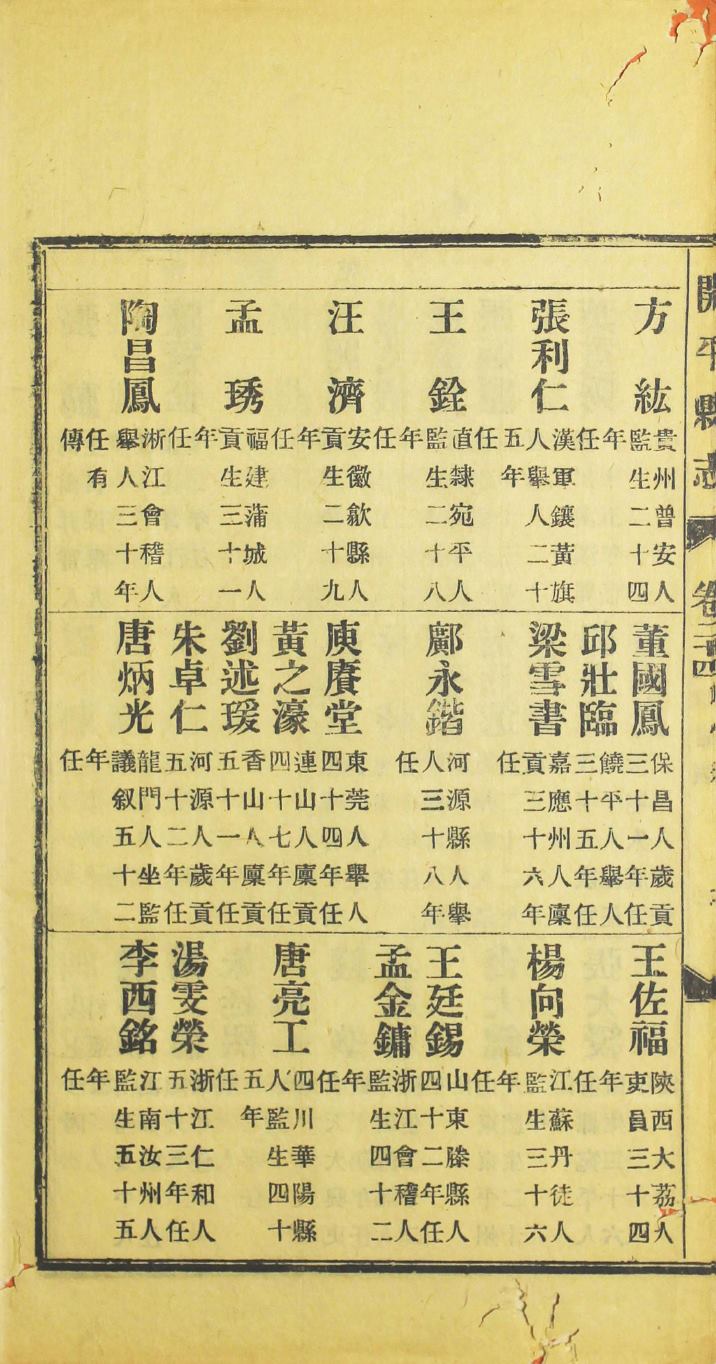 開平縣志
方紘
貴州普安人
監生二十四
年任
張利仁
漢軍鑲黃旗
人舉人二十
五年任
王銓
直隸宛平人
監生二十八
年任
汪濟
安徽歙縣人
貢生二十九
年任
孟琇
福建蒲城人
貢生三十一
年任
陶昌鳳
浙江會稽人
舉人三十年
任有傳
董國鳳
保昌人歲貢
三十一年任
邱壯臨
饒平人舉人
三十五年任
梁雪書
嘉應州人廩
貢三十六年
任
鄺永鍇
河源縣人舉
人三十八年
任
庾賡堂
東莞人舉人
四十四年任
黃之濠
連山人廩貢
四十七年任
劉述瑗
香山人廩貢
五十一年任
朱卓仁
河源人歲貢
五十二年任
唐炳光
龍門人坐監
議叙五十二
年任
王佐福
陝西大荔人
吏員三十四
年任
楊向榮
江蘇丹徒人
監生三十六
年任
王廷錫
山東滕縣人
四十二年任
孟金鏞
浙江會稽人
監生四十二
年任
唐亮工
四川華陽縣
人監生四十
五年任
湯雯榮
浙江仁和人
五十三年任
李西銘
江南汝州人
監生五十五
年任